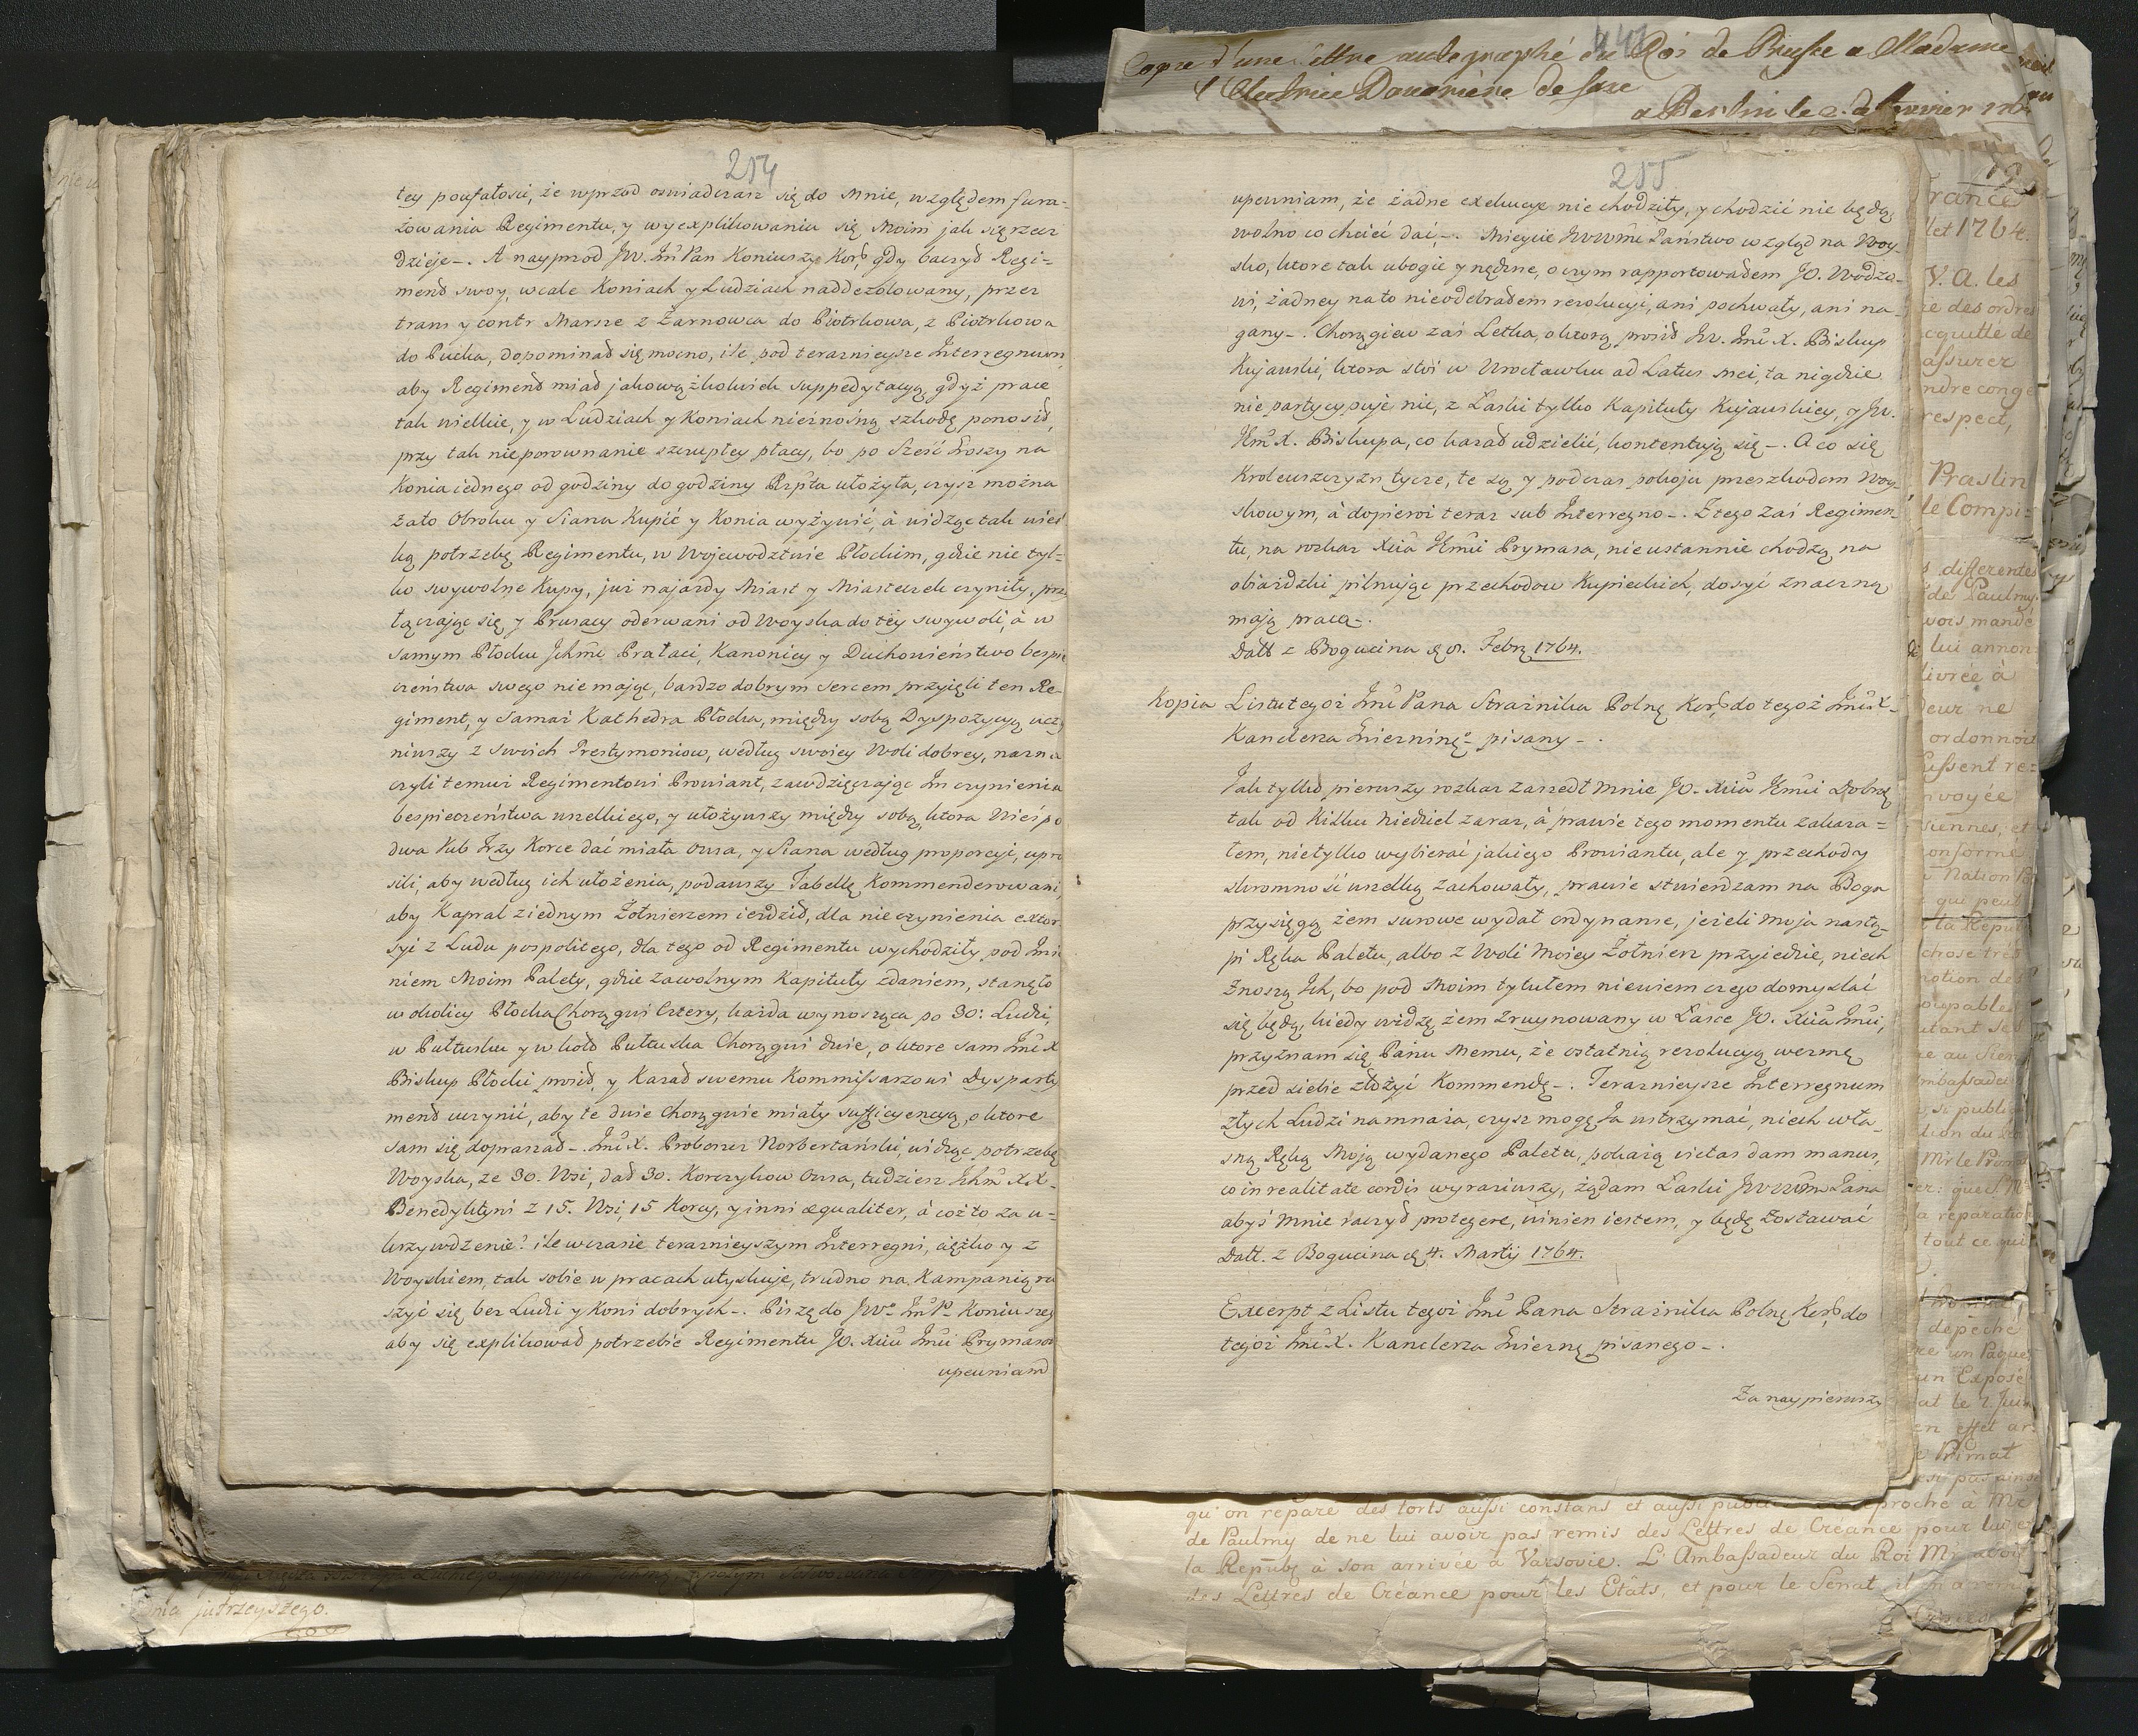 254
tey poufałości, że wprzod oswiadczasz się do Mnie, względem fura=
żowania Regimentu, y wyexplikowaniu się Moim jak się rzecz
dzieje-. A nayprzod JW. Jmć Pan Koniuszy Kor: gdy baczył Regi=
ment swoy, wcale Koniach y Ludziach naddezolowany, przez
trans y contr Marsze z Żarnowca do Piotrkowa, z Piotrkowa
do Pucka, dopominał się mocno, ile pod teraznieysze Interregnum,
aby Regiment miał jakowążkolwiek suppedytacyą, gdyż prace
tak wielkie, y w Ludziach y Koniach nieznośną szkodę ponosił,
przy tak nieporownanie szczupłey płacy, bo po Sześć Groszy na
Konia iednego od godziny do godziny Rzpta ułożyła, czysz można
zato Obroku y Siana Kupić y Konia wyżywić, à widząc tak wiel
ką potrzebę Regimentu, w Wojewodztwie Płockim, gdzie nie tyl=
ko swywolne Kupy, już najazdy Miast y Miasteczek czyniły, prz
łączając się y Prusacy oderwani od Woyska do tey swywoli, à w
samym Płocku Ichmć Prałaci, Kanonicy y Duchowieństwo bespie
czeństwa swego nie mając, bardzo dobrym sercem przyięli ten Re-
giment, y Samaż Kathedra Płocka, między sobą Dyspozycyą uczy
niwszy z swoich Prestymoniow, według swoiey Woli dobrey, nazna
czyli temuż Regimentowi Prowiant, zawdzięczając Im czynienia
bespieczeństwa wszelkiego, y ułożywszy między sobą, ktora Wieś po
dwa lub Trzy Korce dać miała Owsa, y Siana według proporcyi, upro
sili, aby według ich ułożenia, podawszy Tabellę, Kommenderowani,
aby Kapral z iednym Żołnierzem ieździł, dla nie czynienia extor
syi z Ludu pospolitego, dla tego od Regimentu wychodziły pod Imie
niem Moim Palety, gdzie za wolnym Kapituły zdaniem, stanęło
w okolicy Płocka Chorągwi Cztery, każda wynosząca po 30: Ludzi,
w Pułtusku y w koło Pułtuska Chorągwi dwie, o ktore sam Jmć X
Biskup Płocki prosił, y Kazał swemu Kommissarzowi Dysparty
ment uczynić, aby te dwie Chorągwie miały sufficyencyą, o ktore
sam się dopraszał-. Jmć X. Proboszcz Norbertański, widząc potrzebę
Woyska, ze 30. Wsi, dał 30. Korczykow Owsa, tudziesz Ichmć XX-
Benedyktyni z 15. Wsi, 15 Korcy, y inni æqualiter, à coż to za u=
krzywdzenie? ile w czasie teraznieyszym Interregni, ciężko y z
Woyskiem, tak sobie w pracach utyskuje, trudno na Kampanią ru
szyć się bez Ludzi y Koni dobrych-. Piszę do JWo JmćPa Koniuszeg
aby się explikował potrzebie Regimentu JO. Xiciu Jmci Prymasow
upewniam
255
upewniam, że żadne exekucye nie chodziły, y chodzić nie będą,
wolno co chcieć dać-. Mieycie JWWmć Państwo wzgląd na Woy-
sko, ktore tak ubogie y nędzne, o czym rapportowałem JO. Wodzo-
wi, żadney na to nieodebrałem rezolucyi, ani pochwały, ani na-
gany-. Chorągiew zaś Letka, o ktorą prosił JW. Jmć X. Biskup
Kujawski, ktora stoi w Włocławku ad Latus mei, ta nigdzie
nie partycypuje nic, z Łaski tylko Kapituły Kujawskiey, y JW.
Jmć X. Biskupa, co kazał udzielić, kontentują się-. A co się
Kroleuszczyzn tycze, te są y podczas pokoju przeszkodem Woy-
skowym, à dopieroż teraz sub Interregno-. Z tego zaś Regimen-
tu, na rozkaz Xcia Jmci Prymasa, nieustannie chodzą na
obiazdki pilnując przechodow Kupieckich, dosyć znaczną
mają pracą-.
Datt z Bogucina Febr 1764.
Kopia Listu tegoż Jmć Pana Straznika Polng Kor: do tegoż Jmć X-
Kanclerza Gniezning- pisany-.
Jak tylko pierwszy rozkaz zaszedł Mnie JO. Xcia Jmci Dobrzą
tak od Kilku Niedziel zaraz, à prawie tego momentu zakaza=
łem, nietylko wybierać jakiego Prowiantu, ale y przechody
skromność wszelką zachowały, prawie stwierdzam na Boga
przysięgą żem surowe wydał ordynanse, jeżeli moja nastą-
pi Ręka Paletu, albo z Woli Moiey Żołnierz przyiedzie, niech
Znoszą Ich, bo pod Moim tytułem niewiem czego domyslać
się będą, kiedy widzę żem zruynowany w Łasce JO. Xcia Jmci,
przyznam się Panu Memu, że ostatnią rezolucyą wezmę
przed siebie złożyć Kommendę-. Teraznieysze Interregnum
złych Ludzi namnaża, czysz mogę Ja wstrzymać, niech wła-
sną Ręką Moją wydanego Paleta, pokażą victas dam manus,
co in realitate cordis wyraziwszy, żądam Łaski JWWmć Pana
abyś Mnie raczył protegere, winien iestem, y będę zostawać
Datt. z Bogucina 4. Martij 1764.
Excerpt z Listu tegoż Jmć Pana Straznika Polng Kor: do
tegoż Jmć X. Kanclerza Gniezng pisanego-.
Za naypierwszy
Copie d'une lettre autographe du Roi de Prusse a Madame
l'Electrice Douairiere de Saxe
a Berlin le 2. de
France
let 1764.
V. A. les
re des ordres
acquitté de
assurer
ndre congé
respect,
Praslin
le Compi=
s differentes
de Paulmy.
vois mandé
lui annon
livrée à
deur ne
ordonnoit
ussent re=
nvoyée
siennes, et
conforme
Nation Po
qui peut
la Repub
chose très
notion des
coupables
qu'on repare des torts aussi constans et aussi reproche à Mr
de Paulmy de ne lui avoir pas remis des Lettres de Créance pour lui et
la Repubq à son arrivée à Varsovie. L'Ambassadeur du Roi Mr avoit
des Lettres de Créance pour les Etâts, et pour le Senat, il
nia jutrzeyszego.